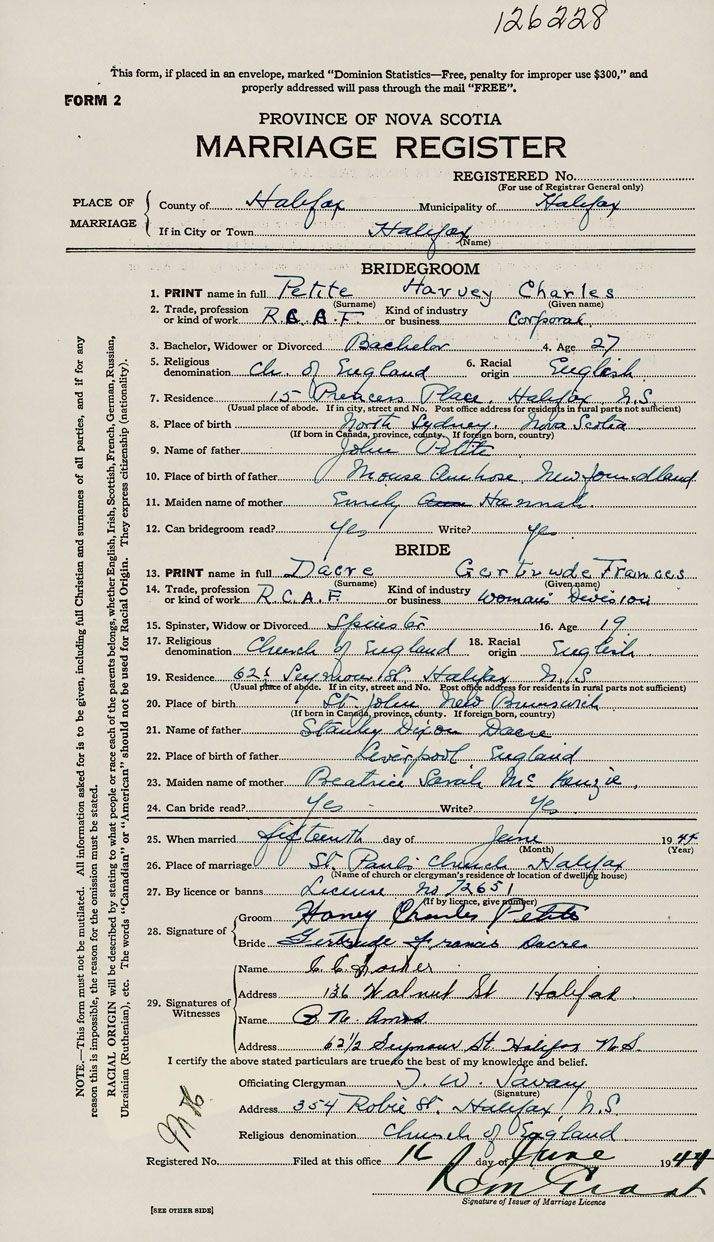 126228
This form, if placed in an envelope, marked "Dominion Statistics—Free, penalty for improper use $300," and
properly addressed will pass through the mail "FREE".
FORM 2
PROVINCE OF NOVA SCOTIA
MARRIAGE REGISTER
REGISTERED No.
(For use of Registrar General only)
PLACE OF MARRIAGE
County of Halifax Municipality of Halifax
If in City or Town Halifax
(Name)
BRIDEGROOM
1. PRINT name in full Petite Harvey Charles
(Surname) (Given name)
2. Trade, profession or kind of work R.C.A.F. Kind of industry or business Corporal
3. Bachelor, Widower or Divorced Bachelor 4. Age 27
5. Religious denomination Ch. of England 6. Racial origin English
7. Residence 15 Princess Place, Halifax N.S.
(Usual place of abode. If in city, street and No. Post office address for residents in rural parts not sufficient)
8. Place of birth North Sydney, Nova Scotia
(If born in Canada, province, county. If foreign born, country)
9. Name of father John Petite
10. Place of birth of father Mouse Ambrose, Newfoundland
11. Maiden name of mother Emily Hannah
12. Can bridegroom read? Yes Write? Yes
BRIDE
13. PRINT name in full Dacre Gertrude Frances
(Surname) (Given name)
14. Trade, profession or kind of work R.C.A.F. Kind of industry or business Woman's Division
15. Spinster, Widow or Divorced Spinster 16. Age 19
17. Religious denomination Church of England 18. Racial origin English
19. Residence Seymour St. Halifax N.S.
(Usual place of abode. If in city, street and No. Post office address for residents in rural parts not sufficient)
20. Place of birth St. John New Brunswick
(If born in Canada, province, county. If foreign born, country)
21. Name of father Stanley Dixon Dacre
22. Place of birth of father Liverpool England
23. Maiden name of mother Beatrice Sarah McKenzie
24. Can bride read? Yes Write? Yes
25. When married fifteenth day of June 1944
(Month) (Year)
26. Place of marriage St. Paul's Church Halifax
(Name of church or clergyman's residence or location of dwelling house)
27. By licence or banns License no 72651
(If by licence, give number)
28. Signature of
Groom Harvey Charles Petite
Bride Gertrude Francis Dacre
29. Signatures of Witnesses
Name C. C.
Address 136 Walnut St Halifax
Name B. M. Amos
Address 62½ Seymour St. Halifax N.S.
I certify the above stated particulars are true to the best of my knowledge and belief.
Officiating Clergyman T. W. Savary
(Signature)
Address 354 Robie St. Halifax N.S.
Religious denomination Church of England
Registered No. Filed at this office 16 day of June 1944
Signature of Issuer of Marriage Licence
[SEE OTHER SIDE]
NOTE.—This form must not be mutilated. All information asked for is to be given, including full Christian and surnames of all parties, and if for any
reason this is impossible, the reason for the omission must be stated.
RACIAL ORIGIN will be described by stating to what people or race each of the parents belongs, whether English, Irish, Scottish, French, German, Russian,
Ukrainian (Ruthenian), etc. The words "Canadian" or "American" should not be used for Racial Origin. They express citizenship (nationality).